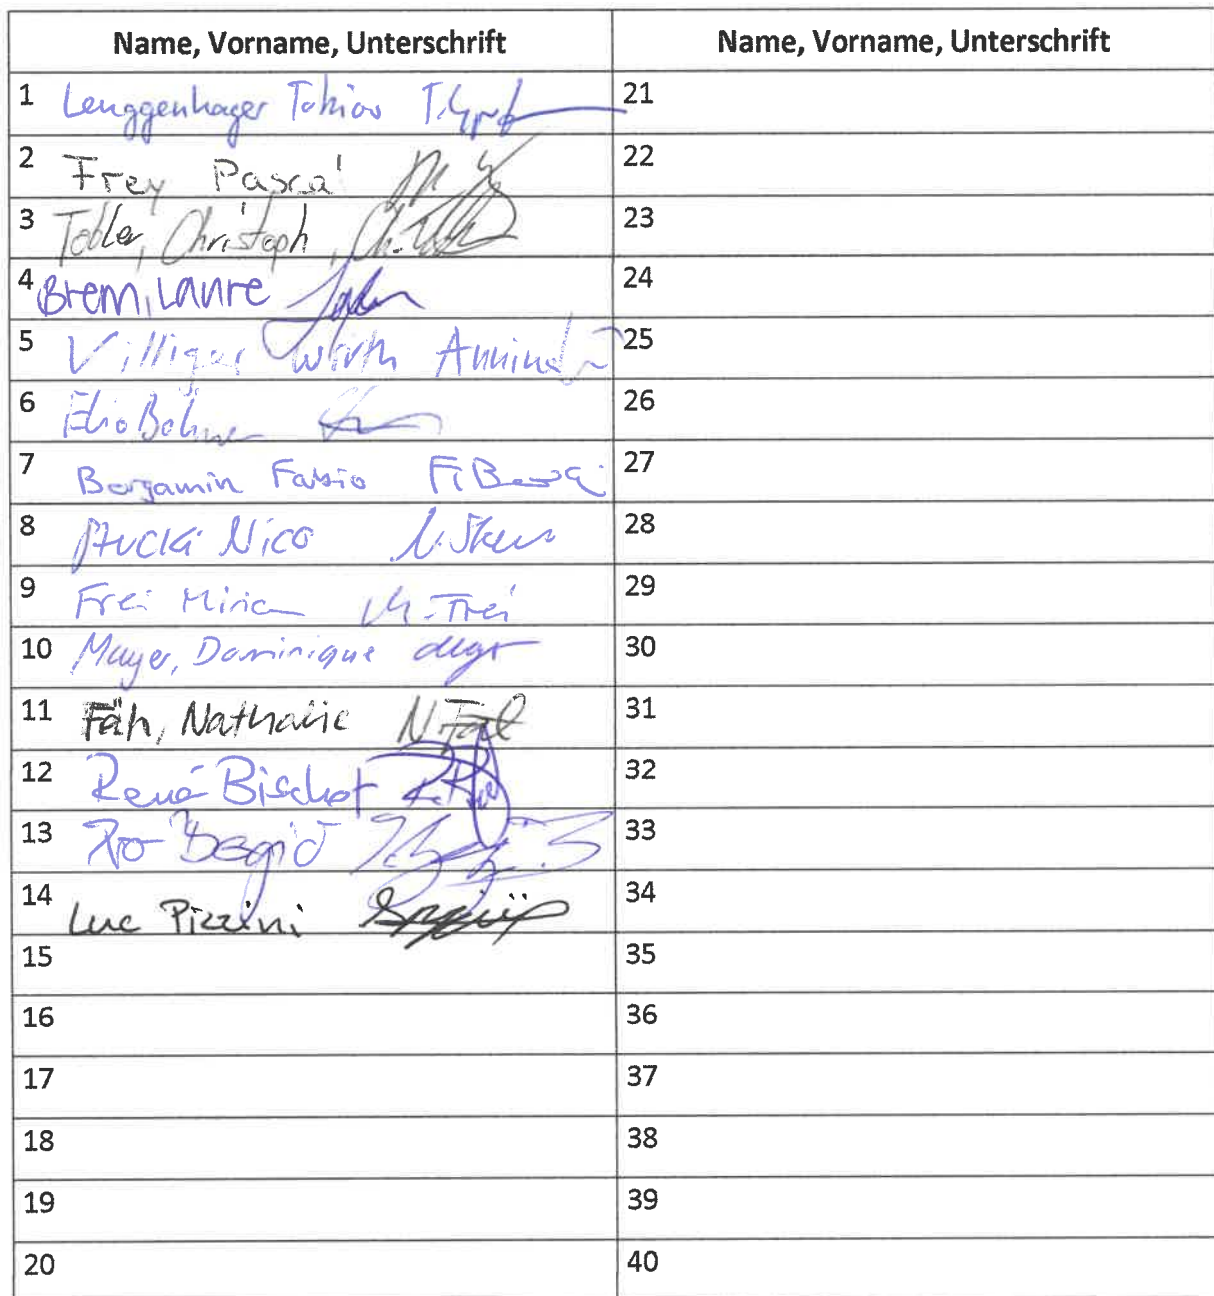 Name, Vorname, Unterschrift Name, Vorname, Unterschrift
1 Lenggenhager Tobias 21
2 Frey Pascal 22
3 Tobler, Christoph, 23
4 Brem, Laure 24
5 Villiger Wirth 25
6 Elio 26
7 Bergamin Fabio 27
8 Stucki Nico 28
9 Frei Miriam M. Frei 29
10 Mayer, Dominique 30
11 Fäh, Nathalie 31
12 René Bischof 32
13 33
14 Luc Pizzini 34
15 35
16 36
17 37
18 38
19 39
20 40